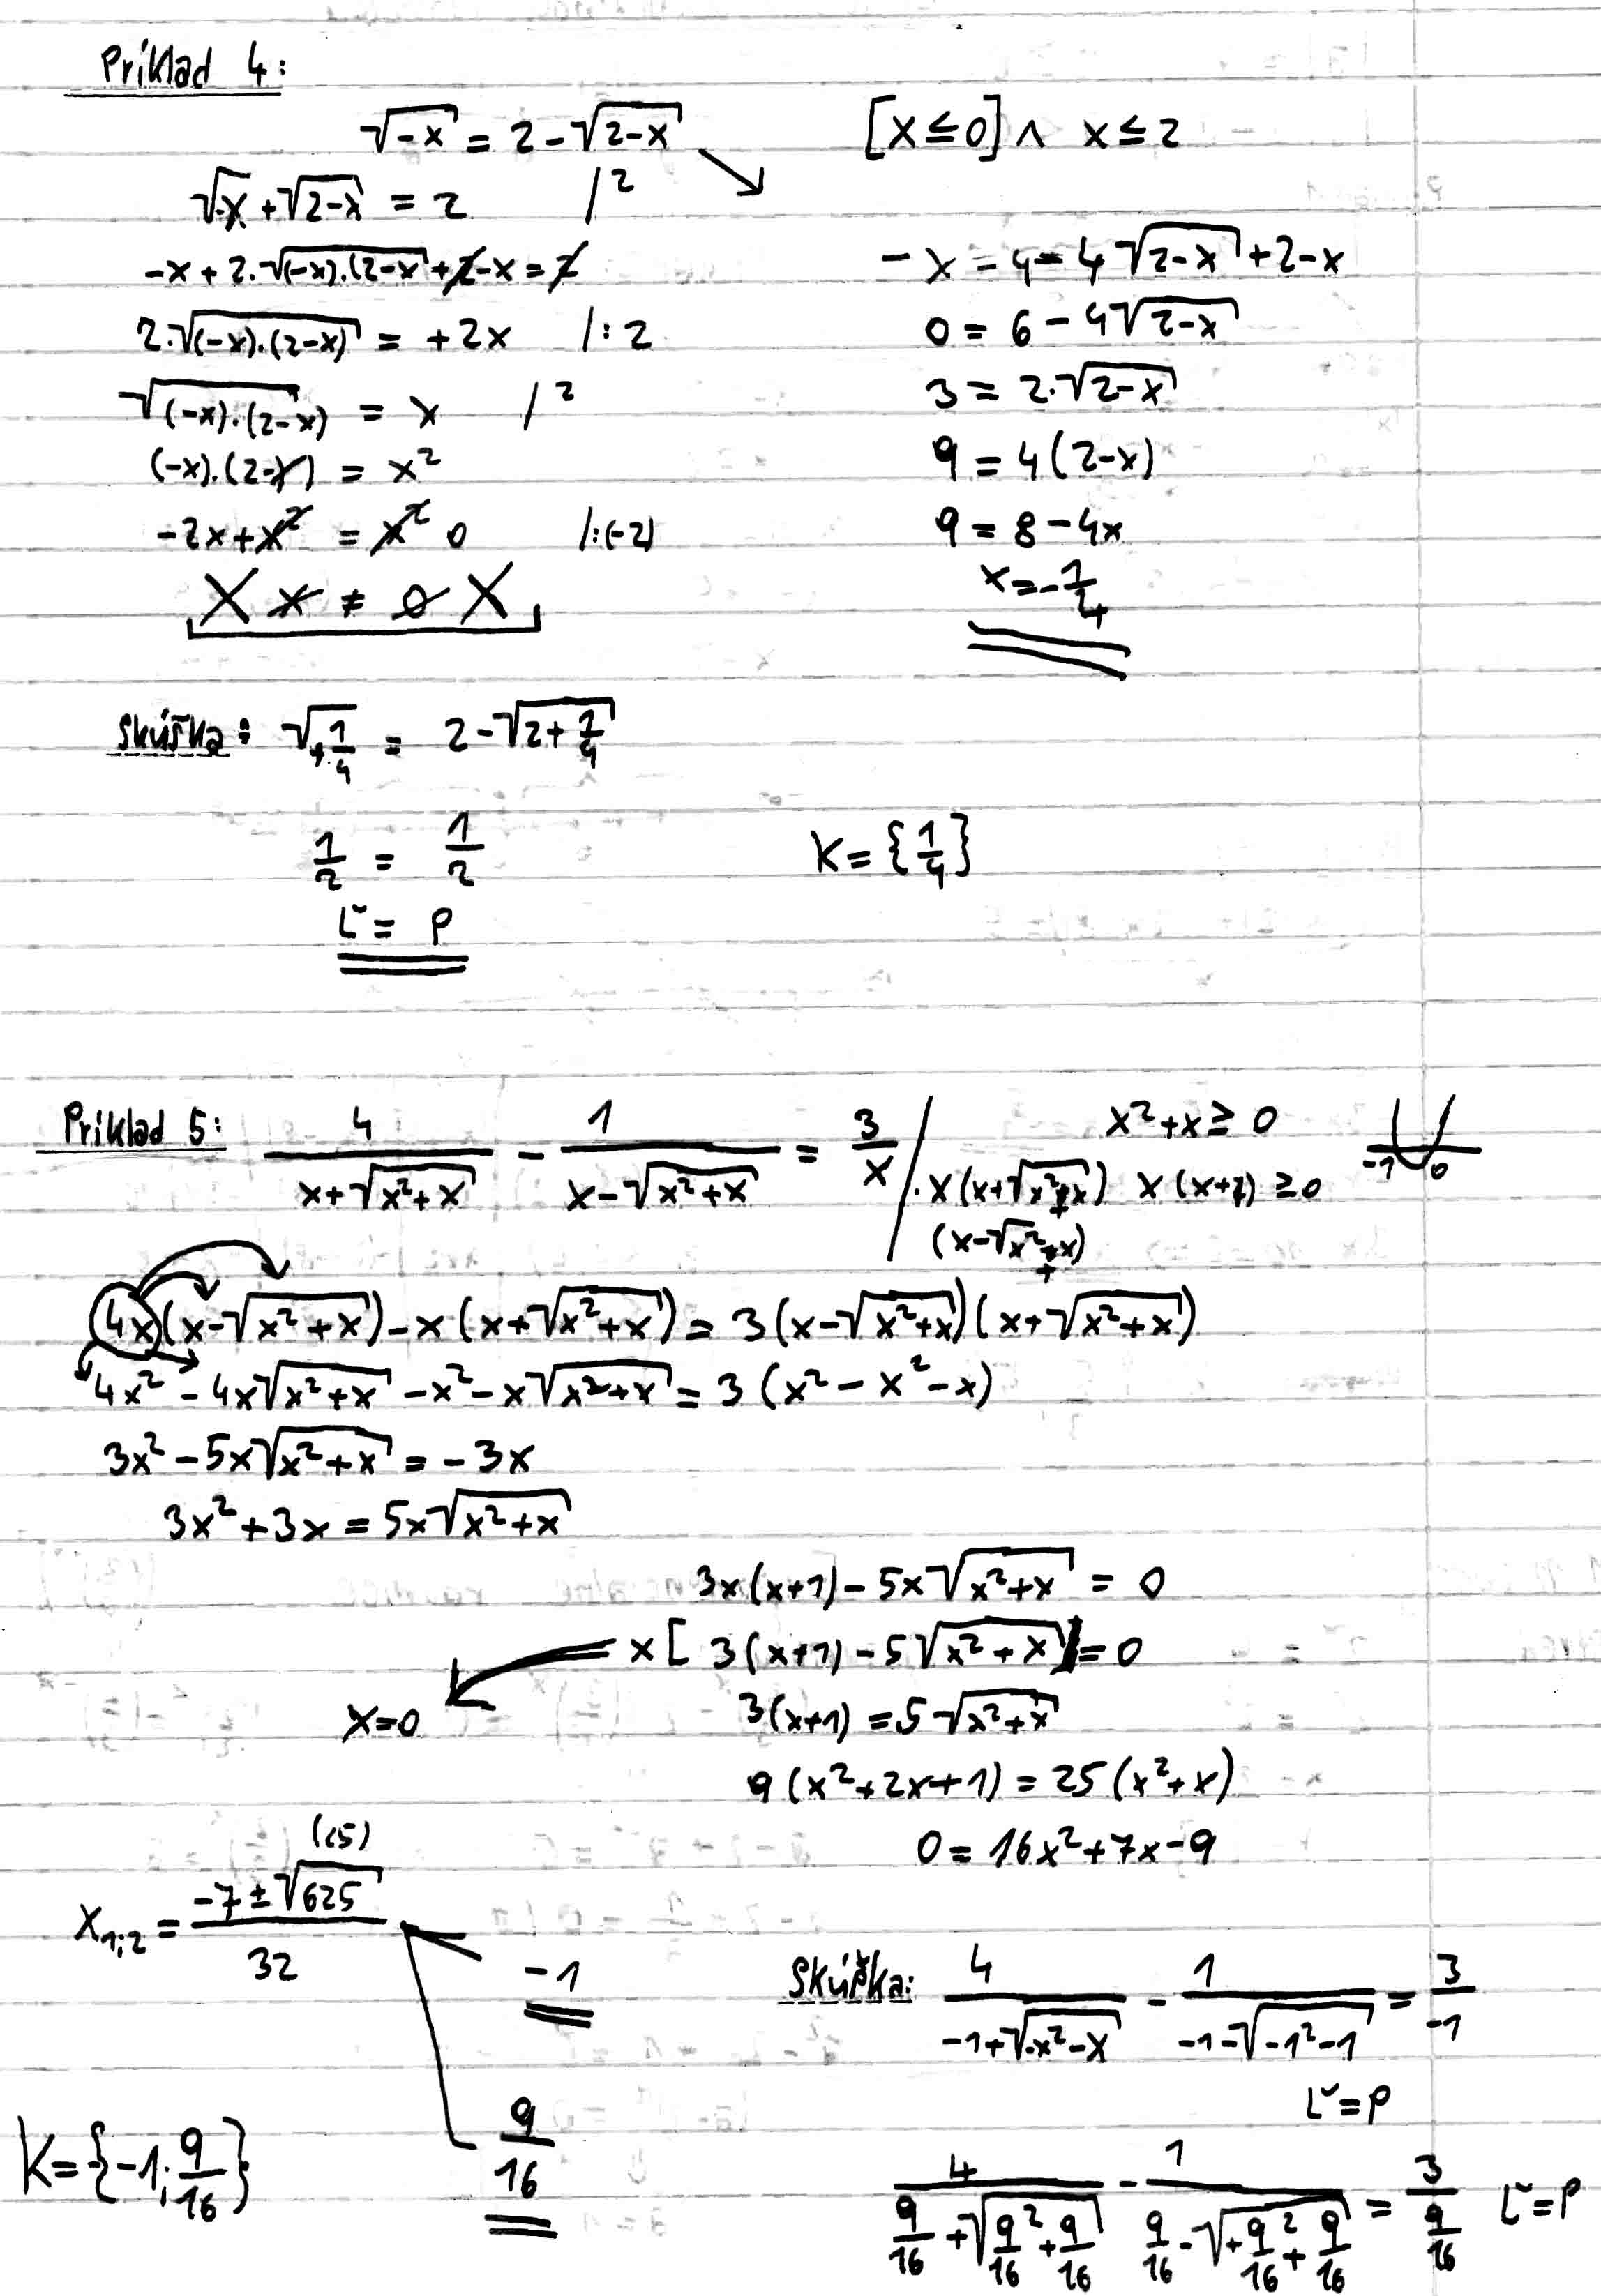 Príklad 4:
√-x = 2 - √2-x   [x ≤ 0] ∧ x ≤ 2
√-x + √2-x = 2   /²
-x + 2·√(-x)·(2-x) + 2 - x = 2
2·√(-x)·(2-x) = +2x   /:2
√(-x)·(2-x) = x   /²
(-x)·(2-x) = x²
-2x + x² = x² 0   /:(-2)
X x ≠ 0 X
-x = 4 - 4√2-x + 2-x
0 = 6 - 4√2-x
3 = 2·√2-x
9 = 4(2-x)
9 = 8 - 4x
x = -1/4
Skúška: √+1/4 = 2 - √2+1/4
1/2 = 1/2   K = {1/4}
Ľ = P
Príklad 5: 4/(x+√x²+x) - 1/(x-√x²+x) = 3/x / ·x(x+√x²+x)(x-√x²+x)
x²+x ≥ 0
x(x+1) ≥ 0
-1 0
4x(x-√x²+x) - x(x+√x²+x) = 3(x-√x²+x)(x+√x²+x)
4x² - 4x√x²+x - x² - x√x²+x = 3(x² - x² - x)
3x² - 5x√x²+x = -3x
3x² + 3x = 5x√x²+x
3x(x+1) - 5x√x²+x = 0
x[3(x+1) - 5√x²+x] = 0
x=0
3(x+1) = 5√x²+x
9(x²+2x+1) = 25(x²+x)
0 = 16x²+7x-9
(25)
x1;2 = (-7 ± √625)/32
-1
9/16
K = {-1; 9/16}
Skúška: 4/(-1+√-x²-x) - 1/(-1-√-1²-1) = 3/-1
Ľ = P
4/(9/16+√9/16²+9/16) - 1/(9/16-√+9/16²+9/16) = 3/(9/16)   Ľ = P